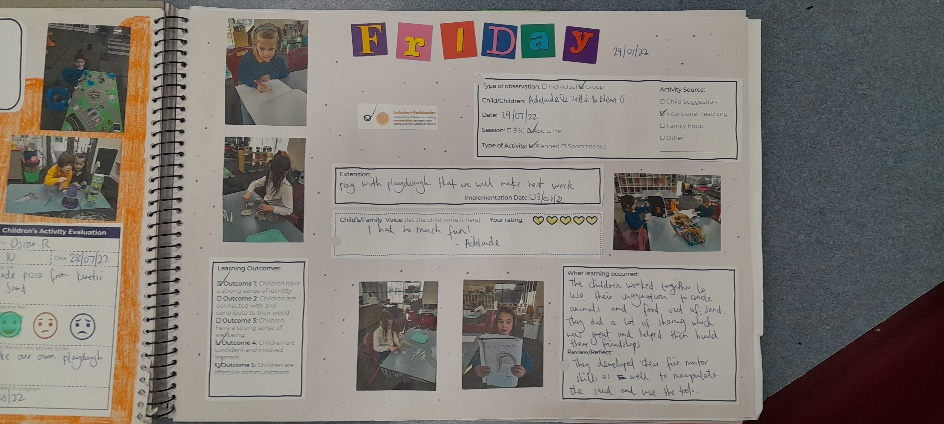 Children's Activity Evaluation
Oscar R
10 Date 28/07/22
made pizza from kinetic
Sand
our own playdough
FRIDAY
29/07/22
Type of observation: ☐ Individual ☑ Group
Child/Children: Adelaide
Date: 29/07/22
Session: ☐ BSC
Type of Activity: ☑ Planned ☐ Spontaneous
Activity Source:
☐ Child Suggestion
☑ Intentional Teaching
☐ Family Input
☐ Other
Extension:
Play with playdough that we will make next week
Implementation Date:
Child's/Family Voice: (let the child write it here) Your rating:
I had so much fun!
- Adelaide
Learning Outcomes:
☑ Outcome 1: Children have
a strong sense of identity
☐ Outcome 2: Children are
connected with and
contribute to their world
☐ Outcome 3: Children
have a strong sense of
wellbeing
☑ Outcome 4: Children are
confident and involved
learners
☑ Outcome 5: Children are
effective communicators
What learning occurred:
The children worked together to
use their imagination to create
animals and food out of sand.
They did a lot of sharing which
was great and helped them build
their friendships
Review/Reflect:
They developed their fine motor
skills as well to manipulate
the sand and use the tools.